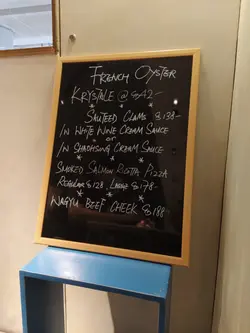 FRENCH OYSTER
KRYSTALE @ $42-
*
SAUTEED CLAMS $138-
IN WHITE WINE CREAM SAUCE
* or *
IN SHAOHSING CREAM SAUCE
* * *
SMOKED SALMON RICOTTA PIZZA
REGULAR $128, LARGE $178-
* * *
WAGYU BEEF CHEEK $188-